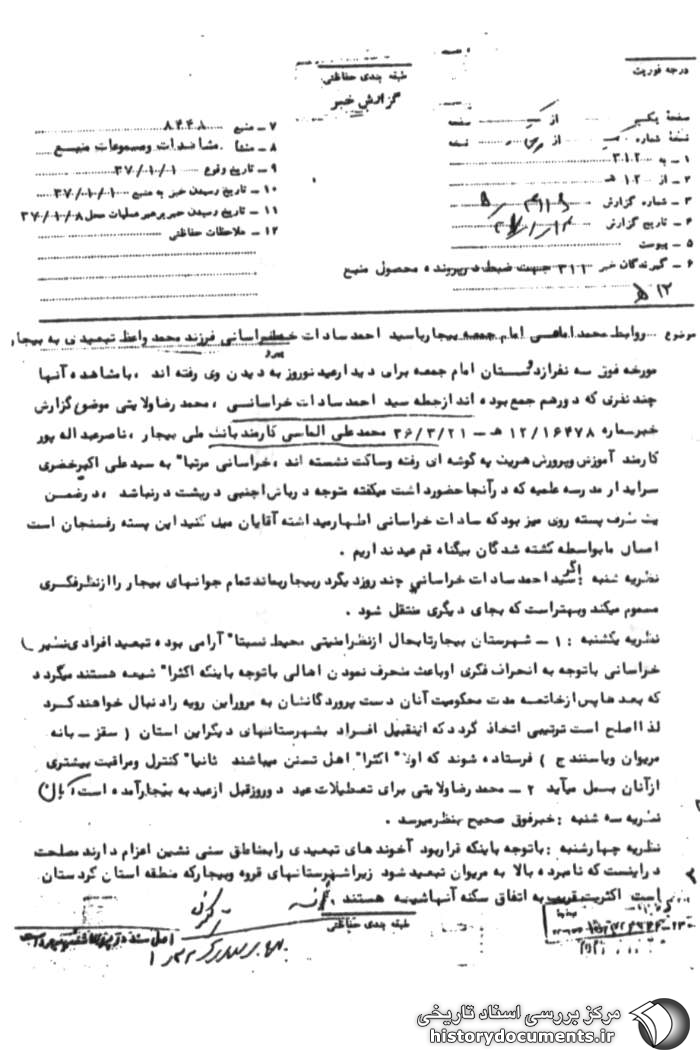 درجه فوریت
طبقه بندی حفاظتی
گزارش خبر
صفحه یک از یک صفحه
نسخه شماره از نسخه
۱ – به ۳۱۲
۲ – از ۱۲ هـ
۳ – شماره گزارش
۴ – تاریخ گزارش
۵ – پیوست
۶ – گیرندگان خبر ۳۱۱ جهت ضبط در پرونده محصول منبع
۱۲ هـ
۷ – منبع ۸۴۴۸
۸ – منشأ مشاهدات و مسموعات منبع
۹ – تاریخ وقوع ۳۷/۰۱/۰۱
۱۰ – تاریخ رسیدن خبر به منبع ۳۷/۰۱/۰۱
۱۱ – تاریخ رسیدن خبر برهبر عملیات محل ۳۷/۰۱/۰۸
۱۲ – ملاحظات حفاظتی
موضوع روابط محمد امامی امام جمعه بیجار با سید احمد سادات خراسانی فرزند محمد واعظ تبعیدی به بیجار
پیرو
مورخه فوق سه نفر از دوستان امام جمعه برای دیدار عید نوروز به دیدن وی رفته اند ، با مشاهده آنها
چند نفری که دورهم جمع بوده اند از جمله سید احمد سادات خراسانی ، محمد رضا ولایتی موضوع گزارش
خبر شماره ۱۲/۱۶۴۷۸ هـ – ۳۶/۳/۲۱ محمد علی الماسی کارمند بانک ملی بیجار ، ناصر عبداله پور
کارمند آموزش وپرورش هریک به گوشه ای رفته وساکت نشسته اند ، خراسانی مرتبا" به سید علی اکبر خضری
سرایدار مدرسه علمیه که درآنجا حضور داشت میگفته متوجه در باش اجنبی دریشت درنباشد ، در ضمن
یک ظرف پسته روی میز بود که سادات خراسانی اظهار میداشته آقایان میل کنید این پسته رفسنجان است
امسال ما بواسطه کشته شدگان بیگناه قم عید نداریم .
نظریه شنبه : اگر سید احمد سادات خراسانی چند روز دیگر در بیجار بماند تمام جوانهای بیجار را از نظر فکری
مسموم میکند وبهتراست که بجای دیگری منتقل شود .
نظریه یکشنبه : ۱ – شهرستان بیجار تا بحال ازنظر امنیتی محیط نسبتا" آرامی بوده تبعید افرادی نظیر (
خراسانی با توجه به انحراف فکری او باعث منحرف نمودن اهالی با توجه باینکه اکثرا" شیعه هستند میگردد
که بعدها پس ازخاتمه مدت محکومیت آنان دست پروردگانشان به مرور این رویه را دنبال خواهند کرد
لذا اصلح است ترتیبی اتخاذ گردد که اینقبیل افراد بشهرستانهای دیگر این استان ( سقز – بانه
مریوان ویا سنندج ) فرستاده شوند که اولا" اکثرا" اهل تسنن میباشند ثانیا" کنترل ومراقبت بیشتری
از آنان بعمل میآید ۲ – محمد رضا ولایتی برای تعطیلات عید دوروز قبل ازعید به بیجار آمده است
نظریه سه شنبه : خبر فوق صحیح بنظر میرسد .
نظریه چهارشنبه : با توجه باینکه قرار بود آخوند های تبعیدی را بمناطق سنی نشین اعزام دارند مصلحت
در اینست که نامبرده بالا به مریوان تبعید شود زیرا شهرستانهای قروه وبیجار که منطقه استان کردستان
است اکثریت قریب به اتفاق سکنه آنها شیعه هستند
طبقه بندی حفاظتی
اصل سند در پرونده
مرکز بررسی اسناد تاریخی
historydocuments.ir